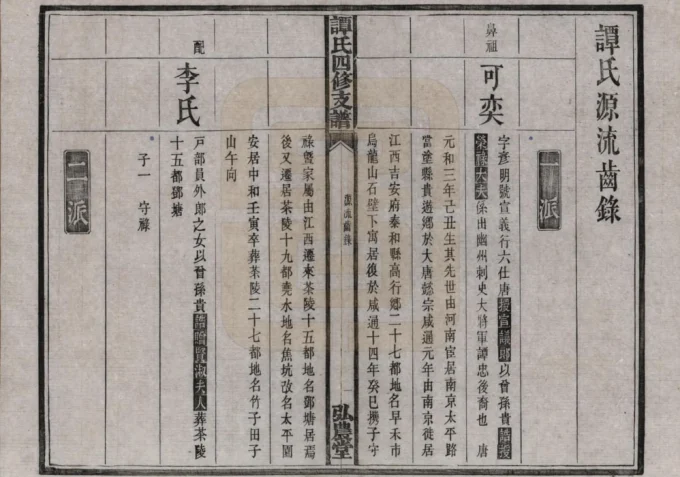 譚氏源流齒錄
一派
鼻祖
可奕
字彥明號宣義行六仕唐授宣議郎以曾孫貴誥授
榮祿大夫係出幽州刺史大將軍譚忠後裔也 唐
元和三年己丑生其先世由河南宦居南京太平路
當塗縣貴遊鄉於大唐懿宗咸通元年由南京徙居
江西吉安府泰和縣高行鄉二十七都地名早禾市
烏龍山石壁下寓居後於咸通十四年癸巳携子守
譚氏四修支譜
源流齒錄
一
弘農堂
祿曁家屬由江西遷來茶陵十五都地名鄧塘居焉
後又遷居茶陵十九都堯水地名蕉坑改名太平園
安居中和壬寅卒葬茶陵二十七都地名竹子田子
山午向
配
李氏
戸部員外郎之女以曾孫貴誥贈賢淑夫人葬茶陵
十五都鄧塘
子一 守祿
二派